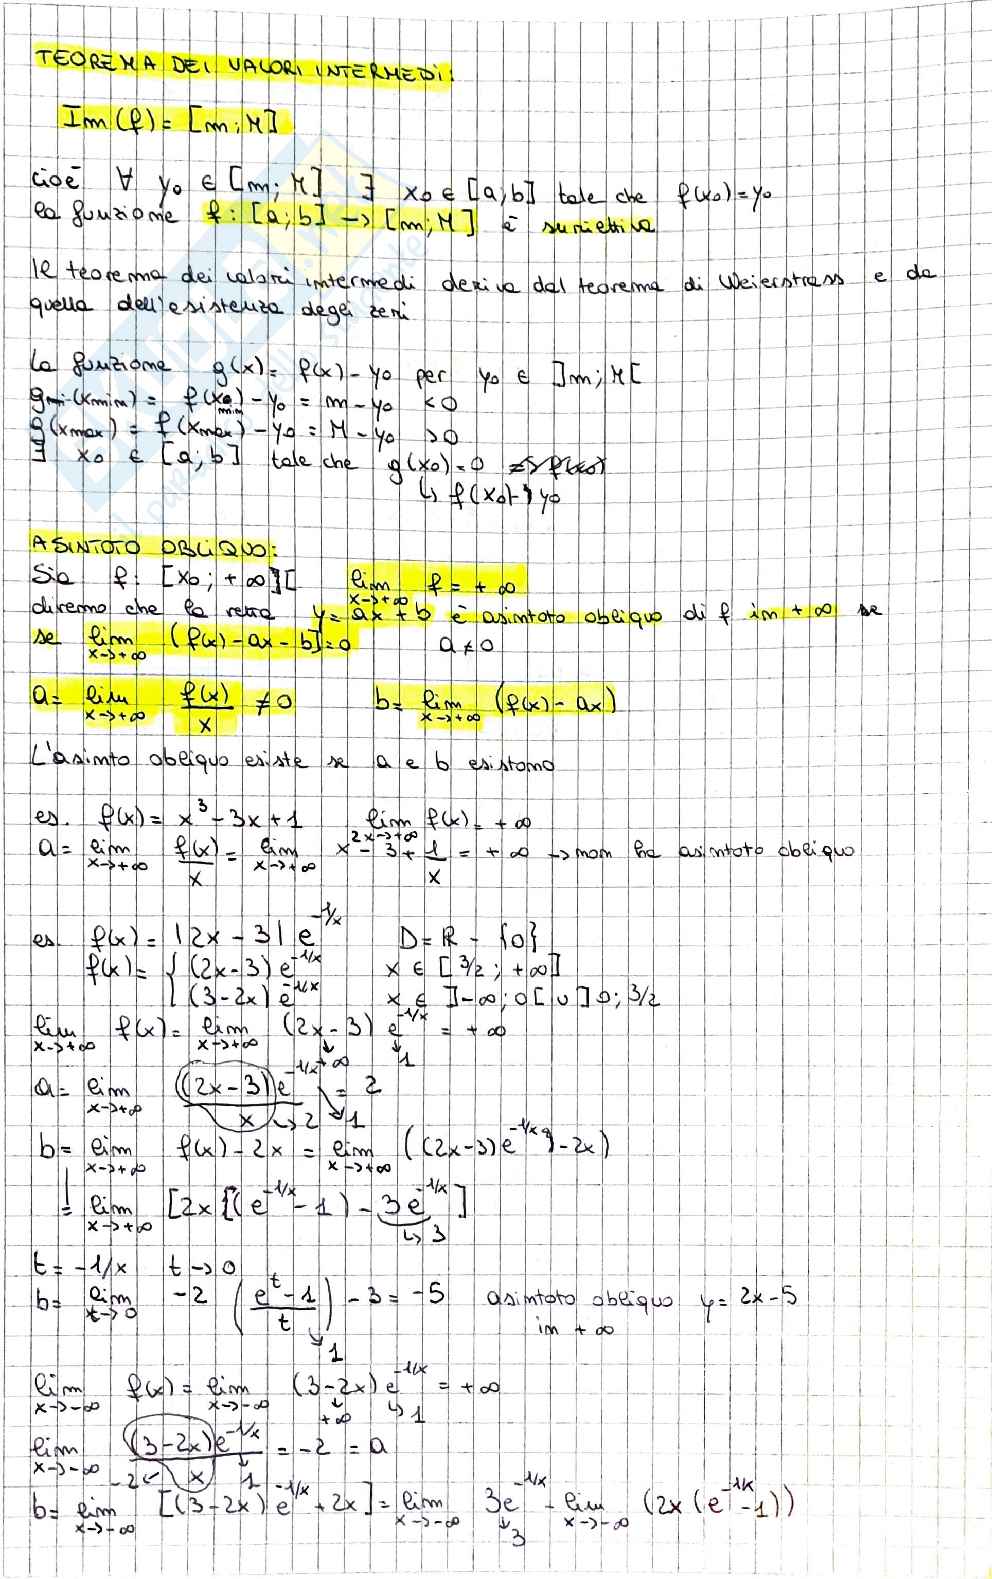 TEOREMA DEI VALORI INTERMEDI:
Im (f) = [m; M]
cioè ∀ y₀ ∈ [m; M] ∃ x₀ ∈ [a; b] tale che f(x₀) = y₀
la funzione f: [a; b] -> [m; M] è suriettiva
Il teorema dei valori intermedi deriva dal teorema di Weierstrass e da
quella dell'esistenza degli zeri
La funzione g(x) = f(x) - y₀ per y₀ ∈ ]m; M[
g (xmin) = f(xmin) - y₀ = m - y₀ < 0
g(xmax) = f(xmax) - y₀ = M - y₀ > 0
∃ x₀ ∈ [a; b] tale che g(x₀) = 0 => f(x₀)
↳ f(x₀) = y₀
ASINTOTO OBLIQUO:
Sia f: [x₀; +∞[ lim x->+∞ f = +∞
diremo che la retta y = ax + b è asintoto obliquo di f in +∞ se
se lim x->+∞ (f(x) - ax - b] = 0 a ≠ 0
a = lim x->+∞ f(x)/x ≠ 0 b = lim x->+∞ (f(x) - ax)
L'asinto obliquo esiste se a e b esistono
es. f(x) = x³ - 3x + 1 lim x->+∞ f(x) = +∞
a = lim x->+∞ f(x)/x = lim x->+∞ x² - 3 + 1/x = +∞ -> non ha asintoto obliquo
es. f(x) = |2x - 3| e^-1/x D = R - {0}
f(x) = { (2x-3) e^-1/x x ∈ [3/2; +∞]
(3-2x) e^-1/x x ∈ ]-∞; 0[ ∪ ]0; 3/2
lim x->+∞ f(x) = lim x->+∞ (2x-3) e^-1/x = +∞
+∞ 1
a = lim x->+∞ (2x-3)e^-1/x / x = 2
->2 1
b = lim x->+∞ f(x) - 2x = lim x->+∞ ((2x-3)e^-1/x) - 2x)
= lim x->+∞ [2x[(e^-1/x - 1) - 3e^-1/x]
↳ 3
t = -1/x t -> 0
b = lim t->0 -2 (e^t - 1 / t) - 3 = -5 asintoto obliquo y = 2x - 5
1 in +∞
lim x->-∞ f(x) = lim x->-∞ (3-2x) e^-1/x = +∞
+∞ ↳ 1
lim x->-∞ (3-2x)e^-1/x / x = -2 = a
-2 1
b = lim x->-∞ [(3-2x) e^-1/x + 2x] = lim x->-∞ 3e^-1/x - lim x->-∞ (2x (e^-1/x - 1))
3